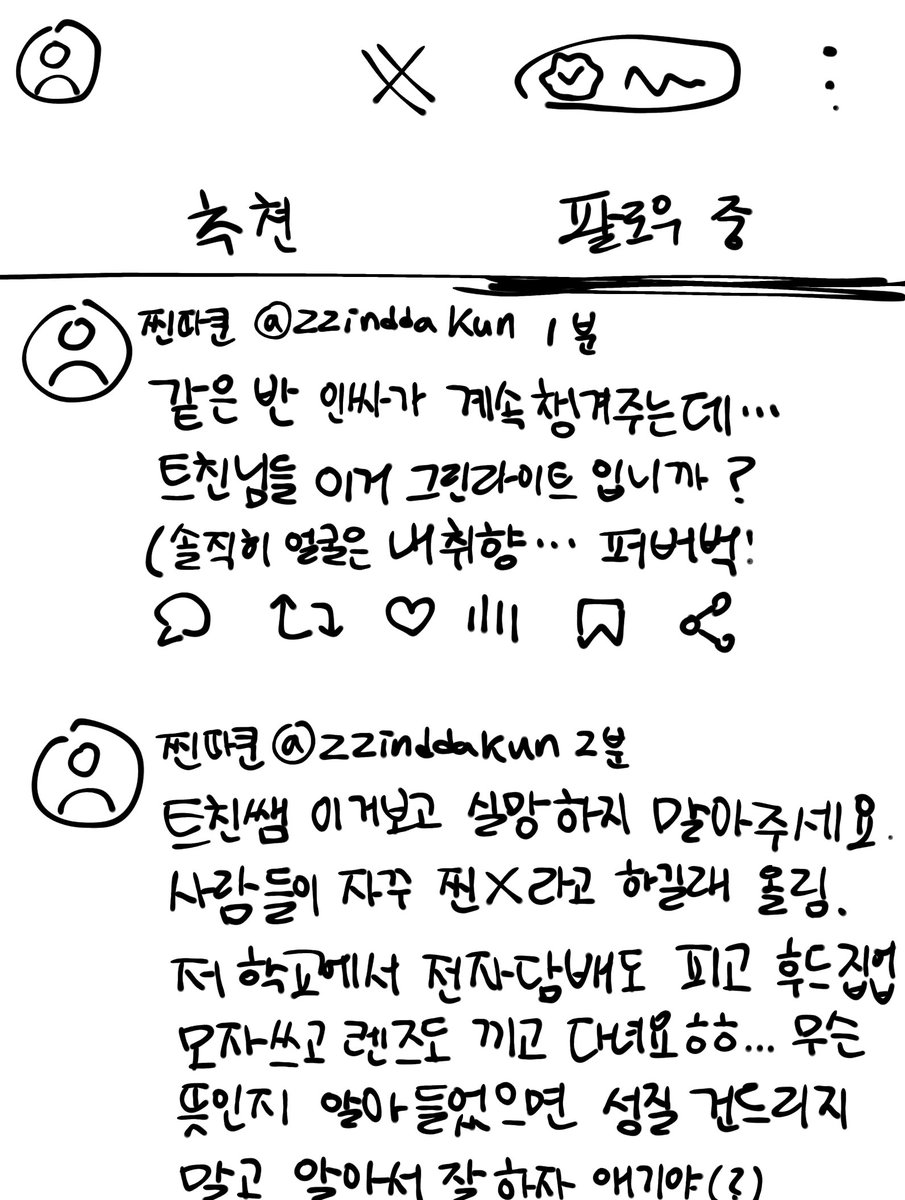 X
추천 팔로우 중
찐따쿤 @zzinddakun 1분
같은 반 인싸가 계속 챙겨주는데...
트친님들 이거 그린라이트 입니까?
(솔직히 얼굴은 내 취향... 퍼버벅!
찐따쿤 @zzinddakun 2분
트친쌤 이거보고 실망하지 말아주세요.
사람들이 자꾸 찐X라고 하길래 올림.
저 학교에서 전자담배도 피고 후드집업
모자쓰고 렌즈도 끼고 다녀요ㅎㅎ... 무슨
뜻인지 알아 들었으면 성질 건드리지
말고 알아서 잘 하자 얘기야(?)